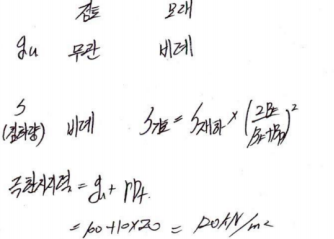 점토 모래
qu 무관 비례
S
(침하량) 비례 S기초 = S재하 × (2BF / BF+BP)²
극한지지력 = qu + rDf.
= 100+10×20 = 120kN/m²